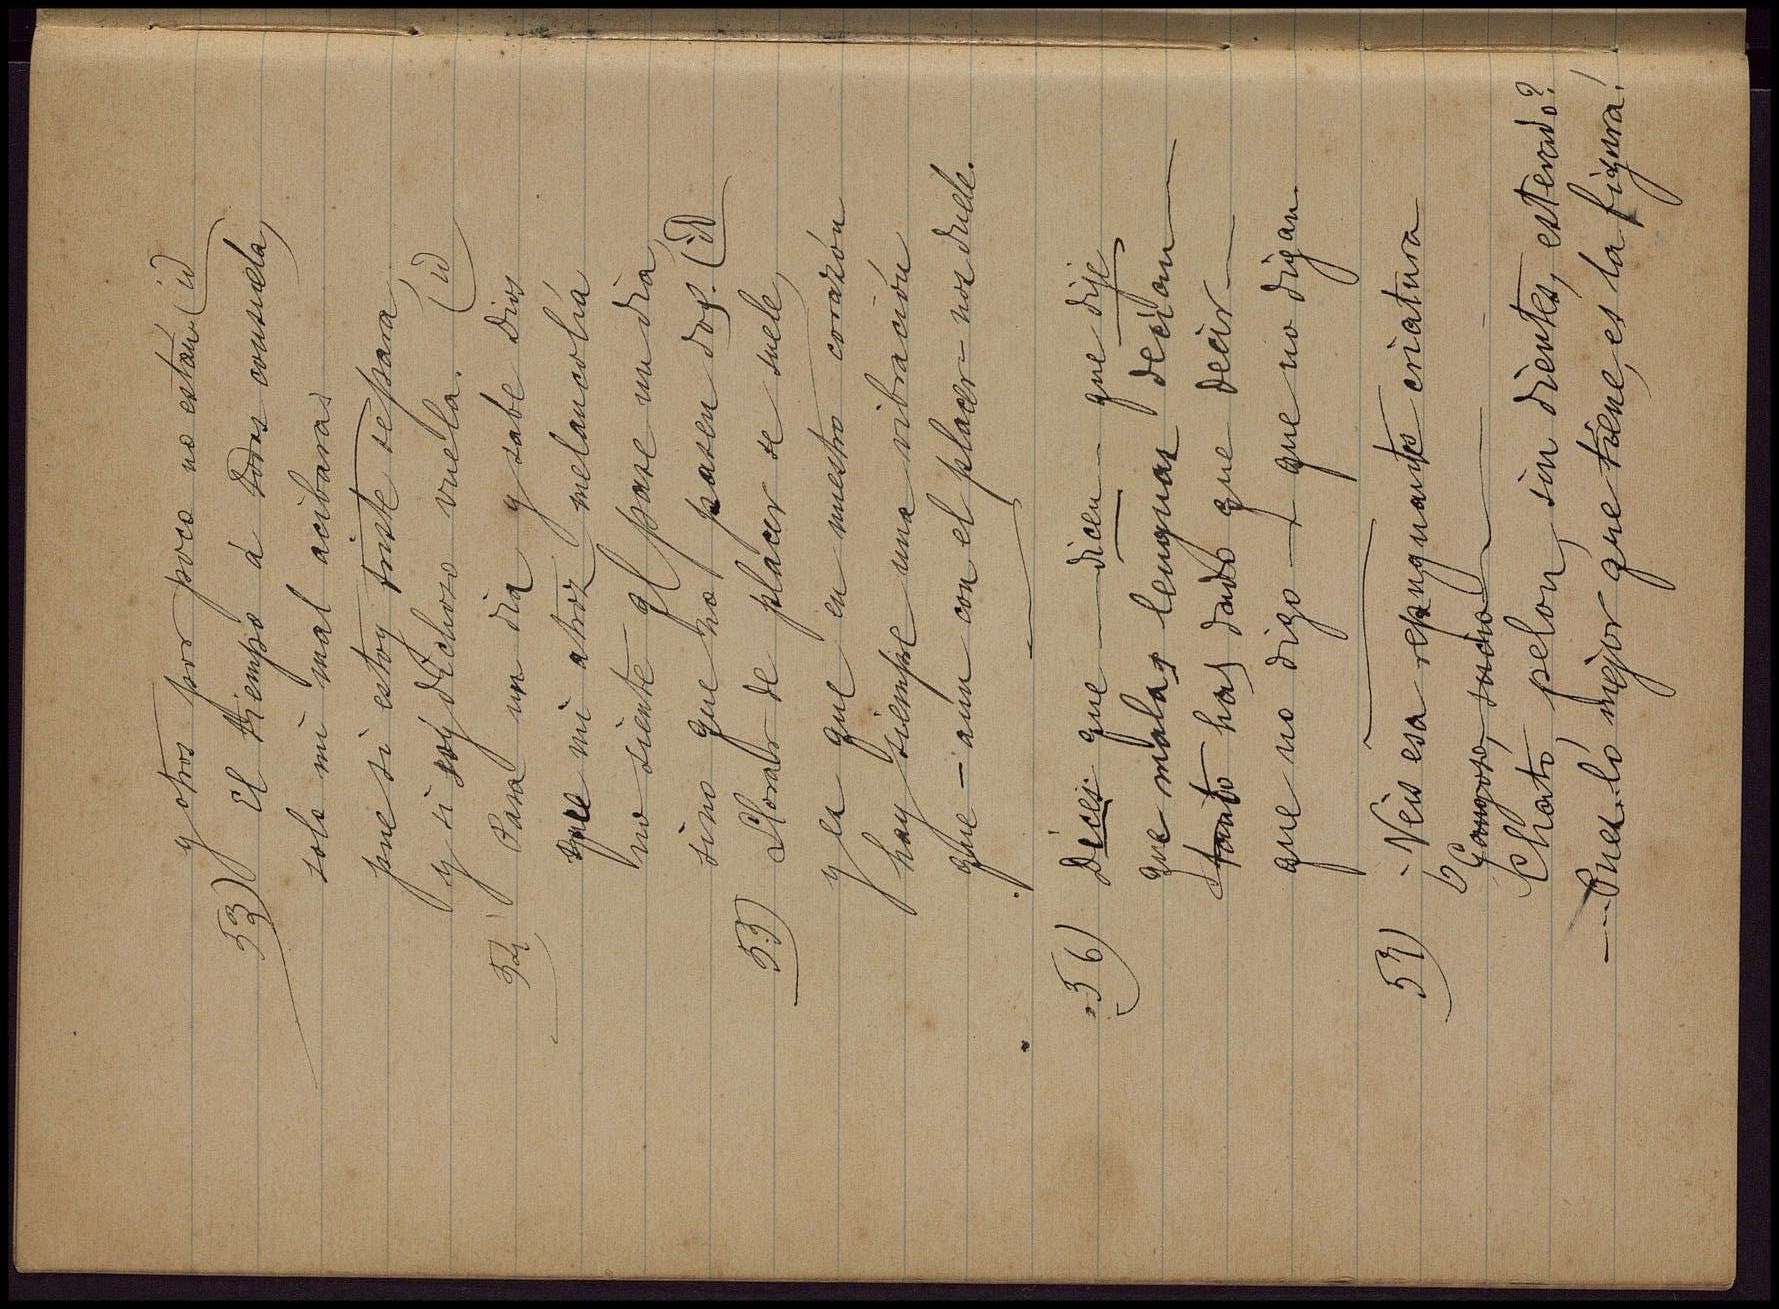 y otros por poco no están (id
53) El tiempo á todos consuela,
solo mi mal acibara,
pue si estoy triste se para
y si soy dichoso vuela. (id
54) Pasa un dia y sabe Dios
que mi atroz melancolía
no siente el pase un dia,
sino que no pasen dos. (id
55) Llorar de placer se suele,
y es que en nuestro corazón
hay siempre una vibración
que - aun con el placer - nos duele.
56) Dices que — dicen — que dije
que malas lenguas decían
tanto has dado que decir —
que no digo — que no digan
57) - Veis esa repugnante criatura
Chato, pelon, sin dientes, estevado?
— Pues lo mejor que tiene, es la figura!